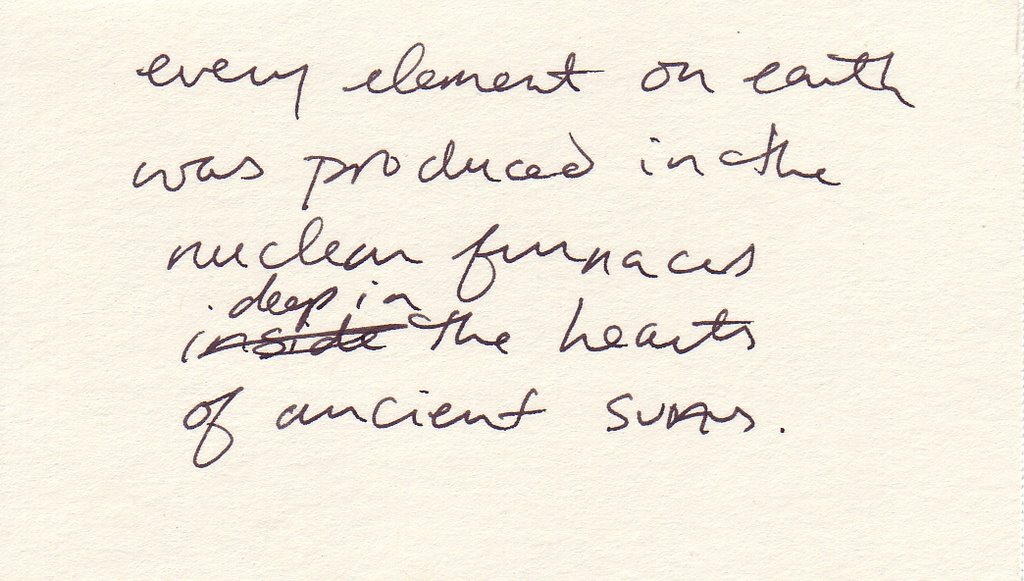 every element on earth
was produced in the
nuclear furnaces
deep in
inside the hearts
of ancient suns.